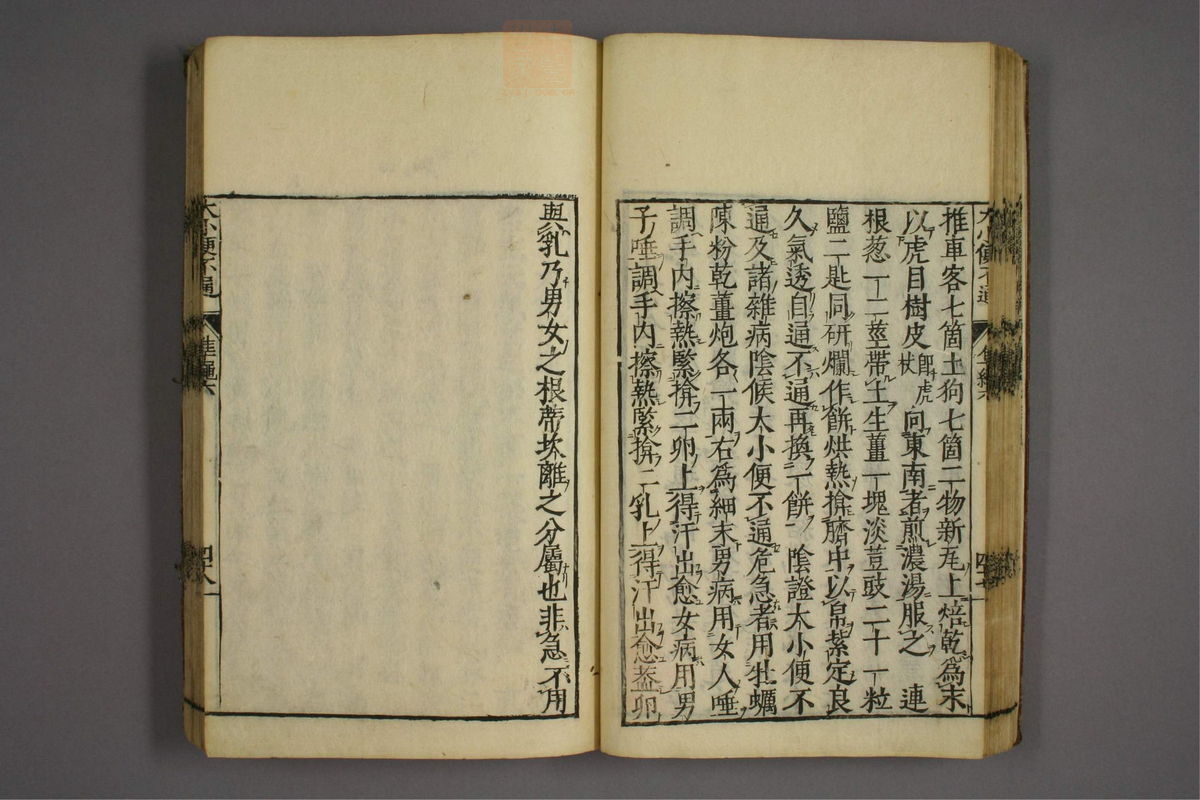 推車客七箇土狗七箇二物新瓦上焙乾爲末
以虎目樹皮卽虎杖向東南者煎濃湯服之　連
根葱一二莖帶土生薑一塊淡荳豉二十一粒
鹽二匙同研爛作餅烘熱揜臍中以帛紮定良
久氣透自通不通再換一餅　陰證大小便不
通及諸雜病陰候大小便不通危急者用牡蠣
陳粉乾薑炮各一兩右爲細末男病用女人唾
調手內擦熱緊揜二卵上得汗出愈女病用男
子唾調手內擦熱緊揜二乳上得汗出愈蓋卵
與乳乃男女之根蒂坎離之分屬也非急不用
大小便不通
準繩六
四八